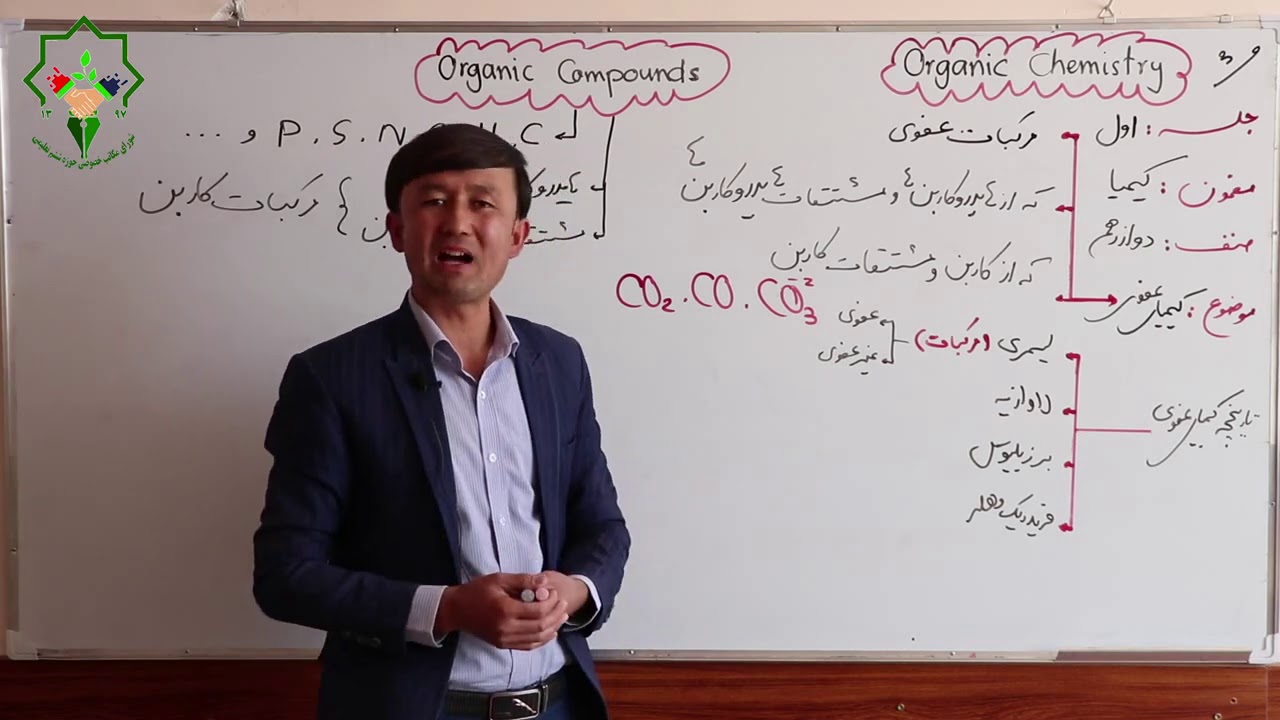 Organic Chemistry
جلسه : اول
مضمون : کیمیا
صنف : دوازدهم
موضوع : کیمیای عضوی
مرکبات عضوی
که از هایدروکاربن ها و مشتقات هایدروکاربن ها
که از کاربن و مشتقات کاربن
CO₂ . CO . CO₃⁻²
تاریخچه کیمیای عضوی
لیمری (مرکبات)
عضوی
غیر عضوی
لاوازیه
برزیلیوس
فریدریک وهلر
Organic Compounds
P . S . N C و ...
هایدروکا
مشتق بن } مرکبات کاربن
۱۳ ۹۷
شورای مکاتب خصوصی حوزه ششم تعلیمی